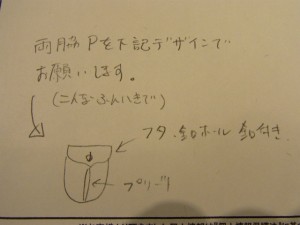 両脇Pを下記デザインで
お願いします。
(こんなふんいきで)
フタ.釦ホール 釦付き.
プリーツ